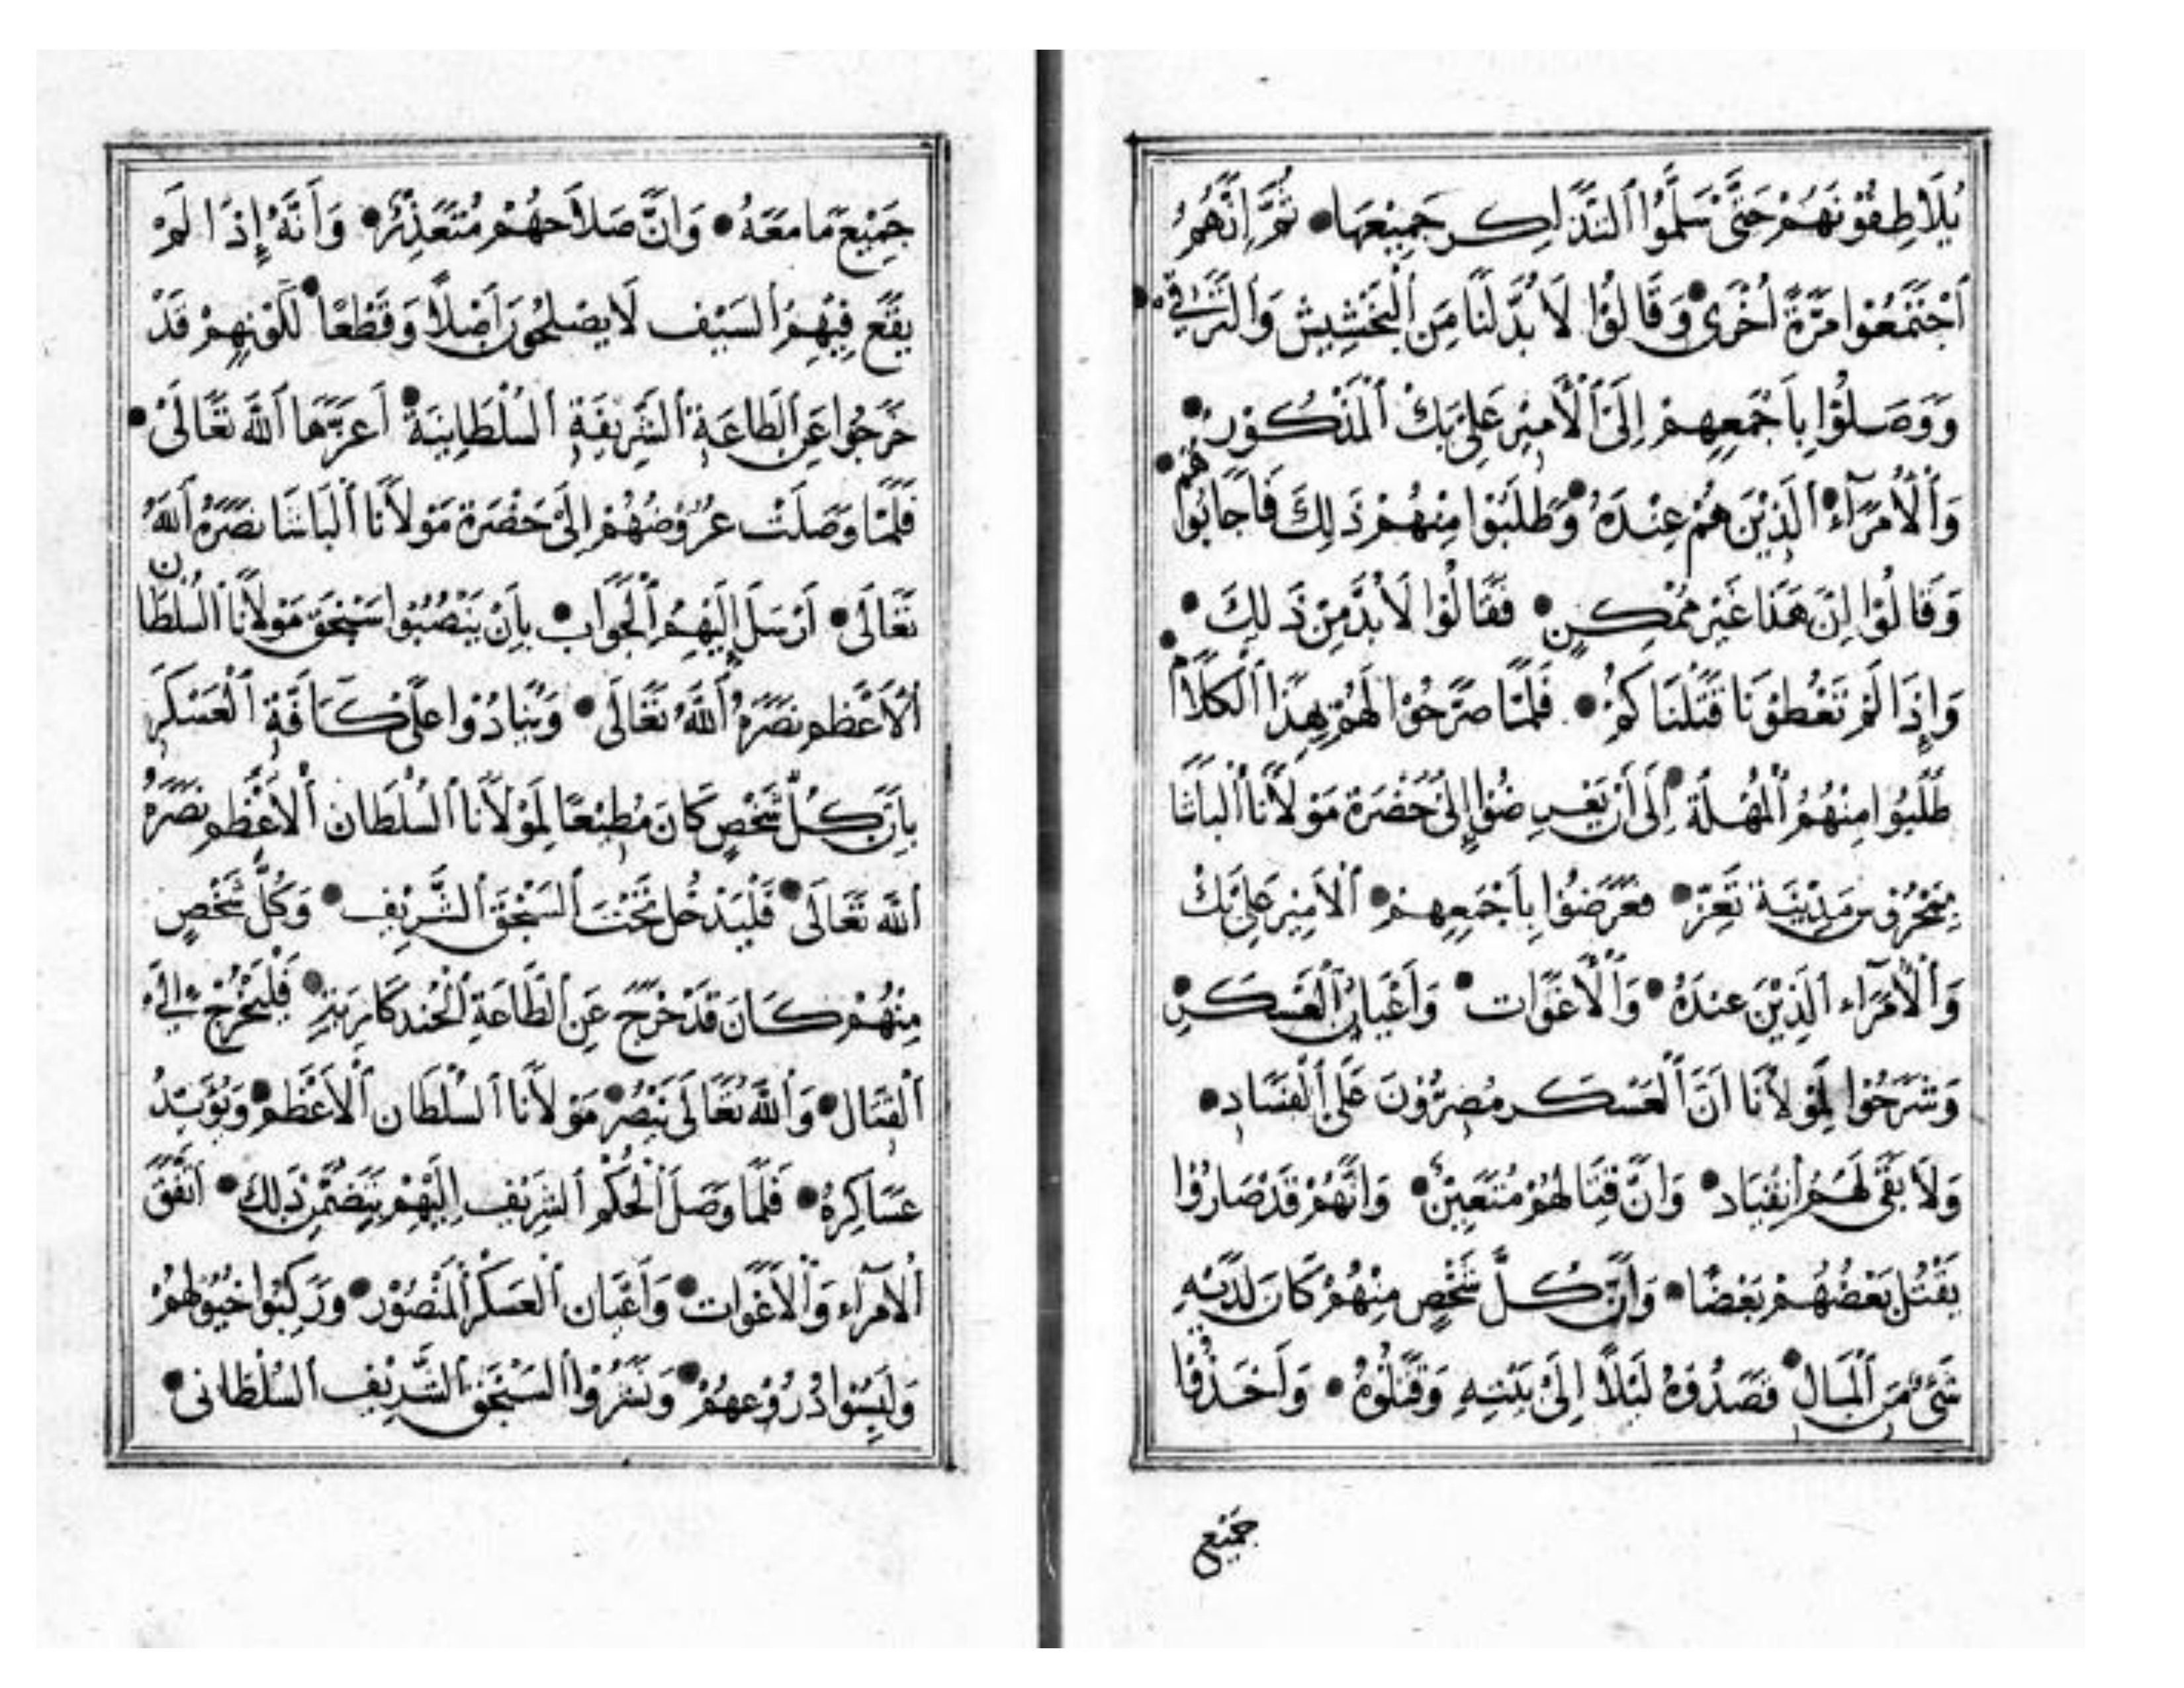 يُلَاطِفُوْنَهُمْ حَتَّى سَلَّمُوا التَّذَاكِر جَمِيْعَهَا • ثُمَّ اِنَّهُمُ
اَجْتَمَعُوْا مَرَّةً اُخْرَى • وَقَالُوْا لَا بُدَّ لَنَا مِنَ الْبَخْشِيْشِ وَالتَّرَاقِي •
وَوَصَلُوْا بِاَجْمَعِهِمْ اِلَى الْاَمِيْرِ عَلِي بَكْ الْمَذْكُوْرِ •
وَالْاُمَرَآءِ • الَّذِيْنَ هُمْ عِنْدَهُ • وَطَلَبُوْا مِنْهُمْ ذَلِكَ فَاَجَابُوْا هُمْ •
وَقَالُوْا اِنَ هَذَا غَيْر مُمْكِنٍ • فَقَالُوْا لَا بُدَّ مِنْ ذَلِكَ •
وَاِذَا لَمْ تَعْطُوْنَا قَتَلْنَاكُمْ • فَلَمَّا صَرَّحُوْا لَهُمْ بِهَذَا الْكَلَامِ •
طَلَبُوا مِنْهُمُ الْمُهْلَةَ • اِلَى اَنْ يَعْرِضُوْا اِلَىْ حَضْرَةِ مَوْلَانَا الْبَاشَا
بِمَحْرُوْسَ مَدِيْنَة تَعِزّ • فَعَرَضُوْا بِاَجْمَعِهِمْ • الْاَمِيْر عَلِي بَكْ
وَالْاُمَرَآء الَّذِيْنَ عِنْدَهُ • وَالْاَغَوَات • وَاَعْيَان الْعَسْكَرِ •
وَشَرَحُوْا لِمَوْلَانَا اَنَّ الْعَسْكَر مُصِرُّوْنَ عَلَى الْفَسَادِ •
وَلَا بَقَى لَهُم اِنْقِيَاد • وَاِنَّ قِتَالَهُمْ مُتَعَيِّنٌ • وَاِنَّهُمْ قَدْ صَارُوْا
يَقْتُل بَعْضُهُمْ بَعْضًا • وَاَنَّ كُلَّ شَخْصٍ مِنْهُمْ كَانَ لَدَيْهِ
شَىْءٌ مِنَ الْمَال • قَصَدُوْهُ لَيْلًا اِلَىْ بَيْتِهِ وَقَتَلُوْهُ • وَاَخَذُوْا
جَمِيْع
جَمِيْعَ مَا مَعَهُ • وَاِنَّ صَلَاحَهُمْ مُتَعَذِّرٌ • وَاَنَّهُ اِذَا لَمْ
يَقَع فِيْهِمُ السَّيْف لَا يَصْلحُوْنَ اَصْلًا وَقَطْعًا • لِكَوْنِهِمْ قَدْ
خَرَجُوْا عَنِ الطَّاعَةِ الشَّرِيْفَةِ السُّلْطَانِيَّةِ • اَعَزَّهَا اللَّهُ تَعَالَىْ •
فَلَمَّا وَصَلَتْ عُرُوْضُهُمْ اِلَىْ حَضْرَةِ مَوْلَانَا الْبَاشَا نَصَرَهُ اللَّهُ
تَعَالَى • اَرْسَلَ اِلَيْهِمُ الْجَوَاب • بِاَنْ يَنْصُبُوْا سَنْجَقَ مَوْلَانَا السُّلْطَان
الْاَعْظَم نَصَرَهُ اللَّهُ تَعَالَى • وَيُنَادُوْا عَلَى كَافَّةِ الْعَسْكَرِ
بِاَنَّ كُلَّ شَخْصٍ كَانَ مُطِيْعًا لِمَوْلَانَا السُّلْطَان الْاَعْظَم نَصَرَهُ
اللَّه تَعَالَى • فَلْيَدْخُلْ تَحْتَ السَّنْجَقِ الشَّرِيْف • وَكُلُّ شَخْصٍ
مِنْهُمْ كَانَ قَدْ خَرَجَ عَنِ الطَّاعَةِ الْخُنْدكَارِيَّةِ • فَلْيَخْرُجْ اِلَىْ
الْقِتَال • وَاللَّهُ تَعَالَى يَنْصُرُ • مَوْلَانَا السُّلْطَان الْاَعْظَم • وَيُؤَيِّدُ
عَسَاكِرهُ • فَلَمَّا وَصَلَ الْحُكْم الشَّرِيْف اِلَيْهِمْ يَتَضَمَّن ذَلِكَ • اتَّفَقَ
الْاُمَرَآء وَالْاَغَوَات • وَاَعْيَان الْعَسْكَرِ الْمَنْصُوْرِ • وَرَكِبُوْا خُيُوْلَهُمْ
وَلَبِسُوْا دُرُوْعَهُمْ • وَنَشَرُوْا السَّنْجَق الشَّرِيْف السُّلْطَانى •